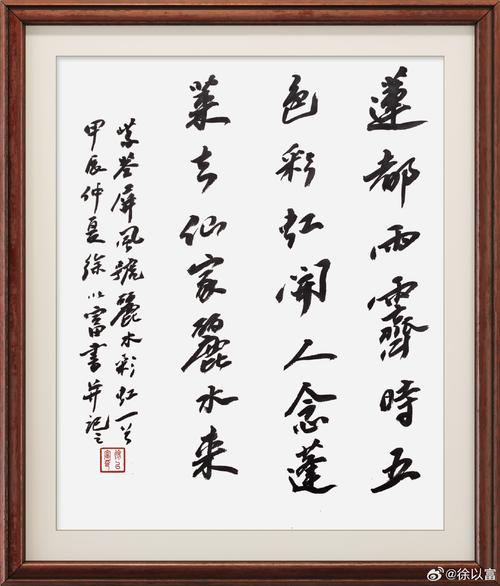 蓮都雨霽時五
色彩虹開人念蓬
萊去仙家麗水来
屏風號麗水彩虹一首
甲辰仲夏徐以富書并記之
@徐以富